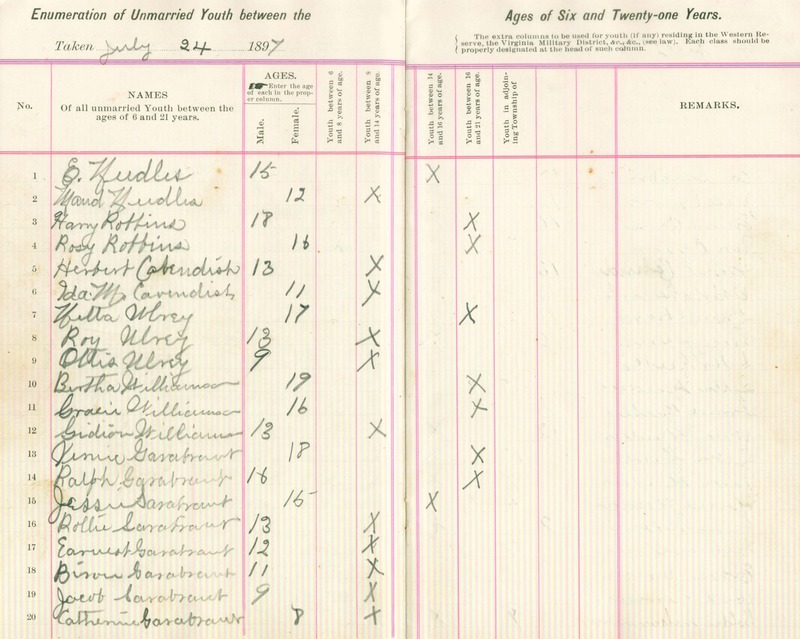 Enumeration of Unmarried Youth between the Ages of Six and Twenty-one Years.
Taken July 24 1897
The extra columns to be used for youth (if any) residing in the Western Re-
serve, the Virginia Military District, &c., &c., (see law). Each class should be
properly designated at the head of such column.
No.
NAMES
Of all unmarried Youth between the
ages of 6 and 21 years.
AGES.
Enter the age
of each in the prop-
er column.
Male.
Female.
Youth between 6
and 8 years of age.
Youth between 8
and 14 years of age.
Youth between 14
and 16 years of age.
Youth between 16
and 21 years of age.
Youth in adjoin-
ing Township of
REMARKS.
1 E. Needles 15 X
2 Maud Needles 12 X
3 Harry Robbins 18 X
4 Rosy Robbins 16 X
5 Herbert Cavendish 13 X
6 Ida M. Cavendish 11 X
7 Ulrey 17 X
8 Roy Ulrey 13 X
9 Ottis Ulrey 9 X
10 Bertha Williamson 19 X
11 Gracie Williamson 16 X
12 Gidion Williamson 13 X
13 Garabrant 18 X
14 Ralph Garabrant 16 X
15 Jessie Garabrant 15 X
16 Rollie Garabrant 13 X
17 Earnest Garabrant 12 X
18 Garabrant 11 X
19 Jacob Garabrant 9 X
20 Catherine Garabrant 8 X